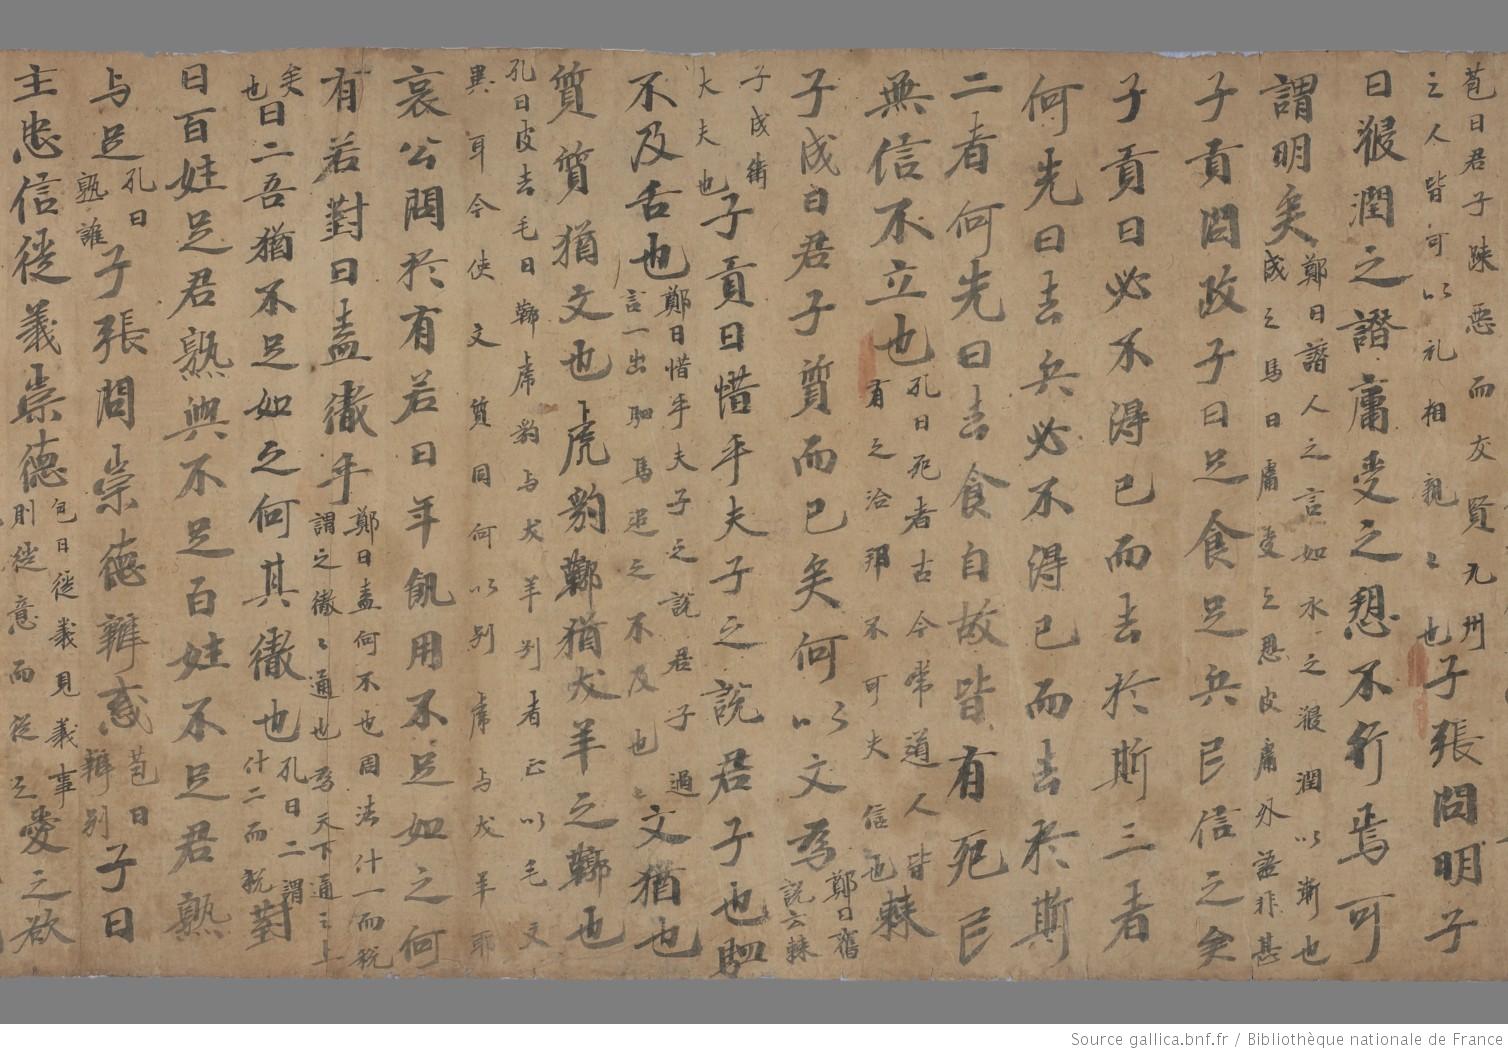 苞曰君子踈恶而友賢九州
之人皆可以礼相親〻也子張問明子
曰㴾潤之譖膚受之愬不行焉可
謂明矣鄭曰譖人之言如水之㴾潤以漸也
成之馬曰膚受之愬皮膚外語非其
子貢問政子曰足食足兵民信之矣
子貢曰必不得已而去於斯三者
何先曰去兵必不得已而去於斯
二者何先曰去食自故皆有死民
無信不立也孔曰死者古今常道人皆
有之治邦不可失信也棘
子成曰君子質而已矣何以文為鄭曰舊
說云棘
子成衛
大夫也子貢曰惜乎夫子之說君子也駟
不及舌也鄭曰惜乎夫子之說君子過
言一出駟馬追之不及也〻文猶也
質質猶文也虎豹鞹猶犬羊之鞹也
孔曰皮去毛曰鞹虎豹与犬羊别者正以毛文
異耳今使文質同何以别虎与犬羊耶
哀公問於有若曰年飢用不足如之何
有若對曰盍徹乎鄭曰盍何不也周法什一而税
謂之徹〻通也為天下通〻上
矣
也曰二吾猶不足如之何其徹也孔曰二謂
什二而税對
曰百姓足君孰與不足百姓不足君孰
与足孔曰
孰誰子張問崇德辨惑苞曰
辨别子曰
主忠信徙義崇德包曰徙義見義事
則徙意而從之愛之欲